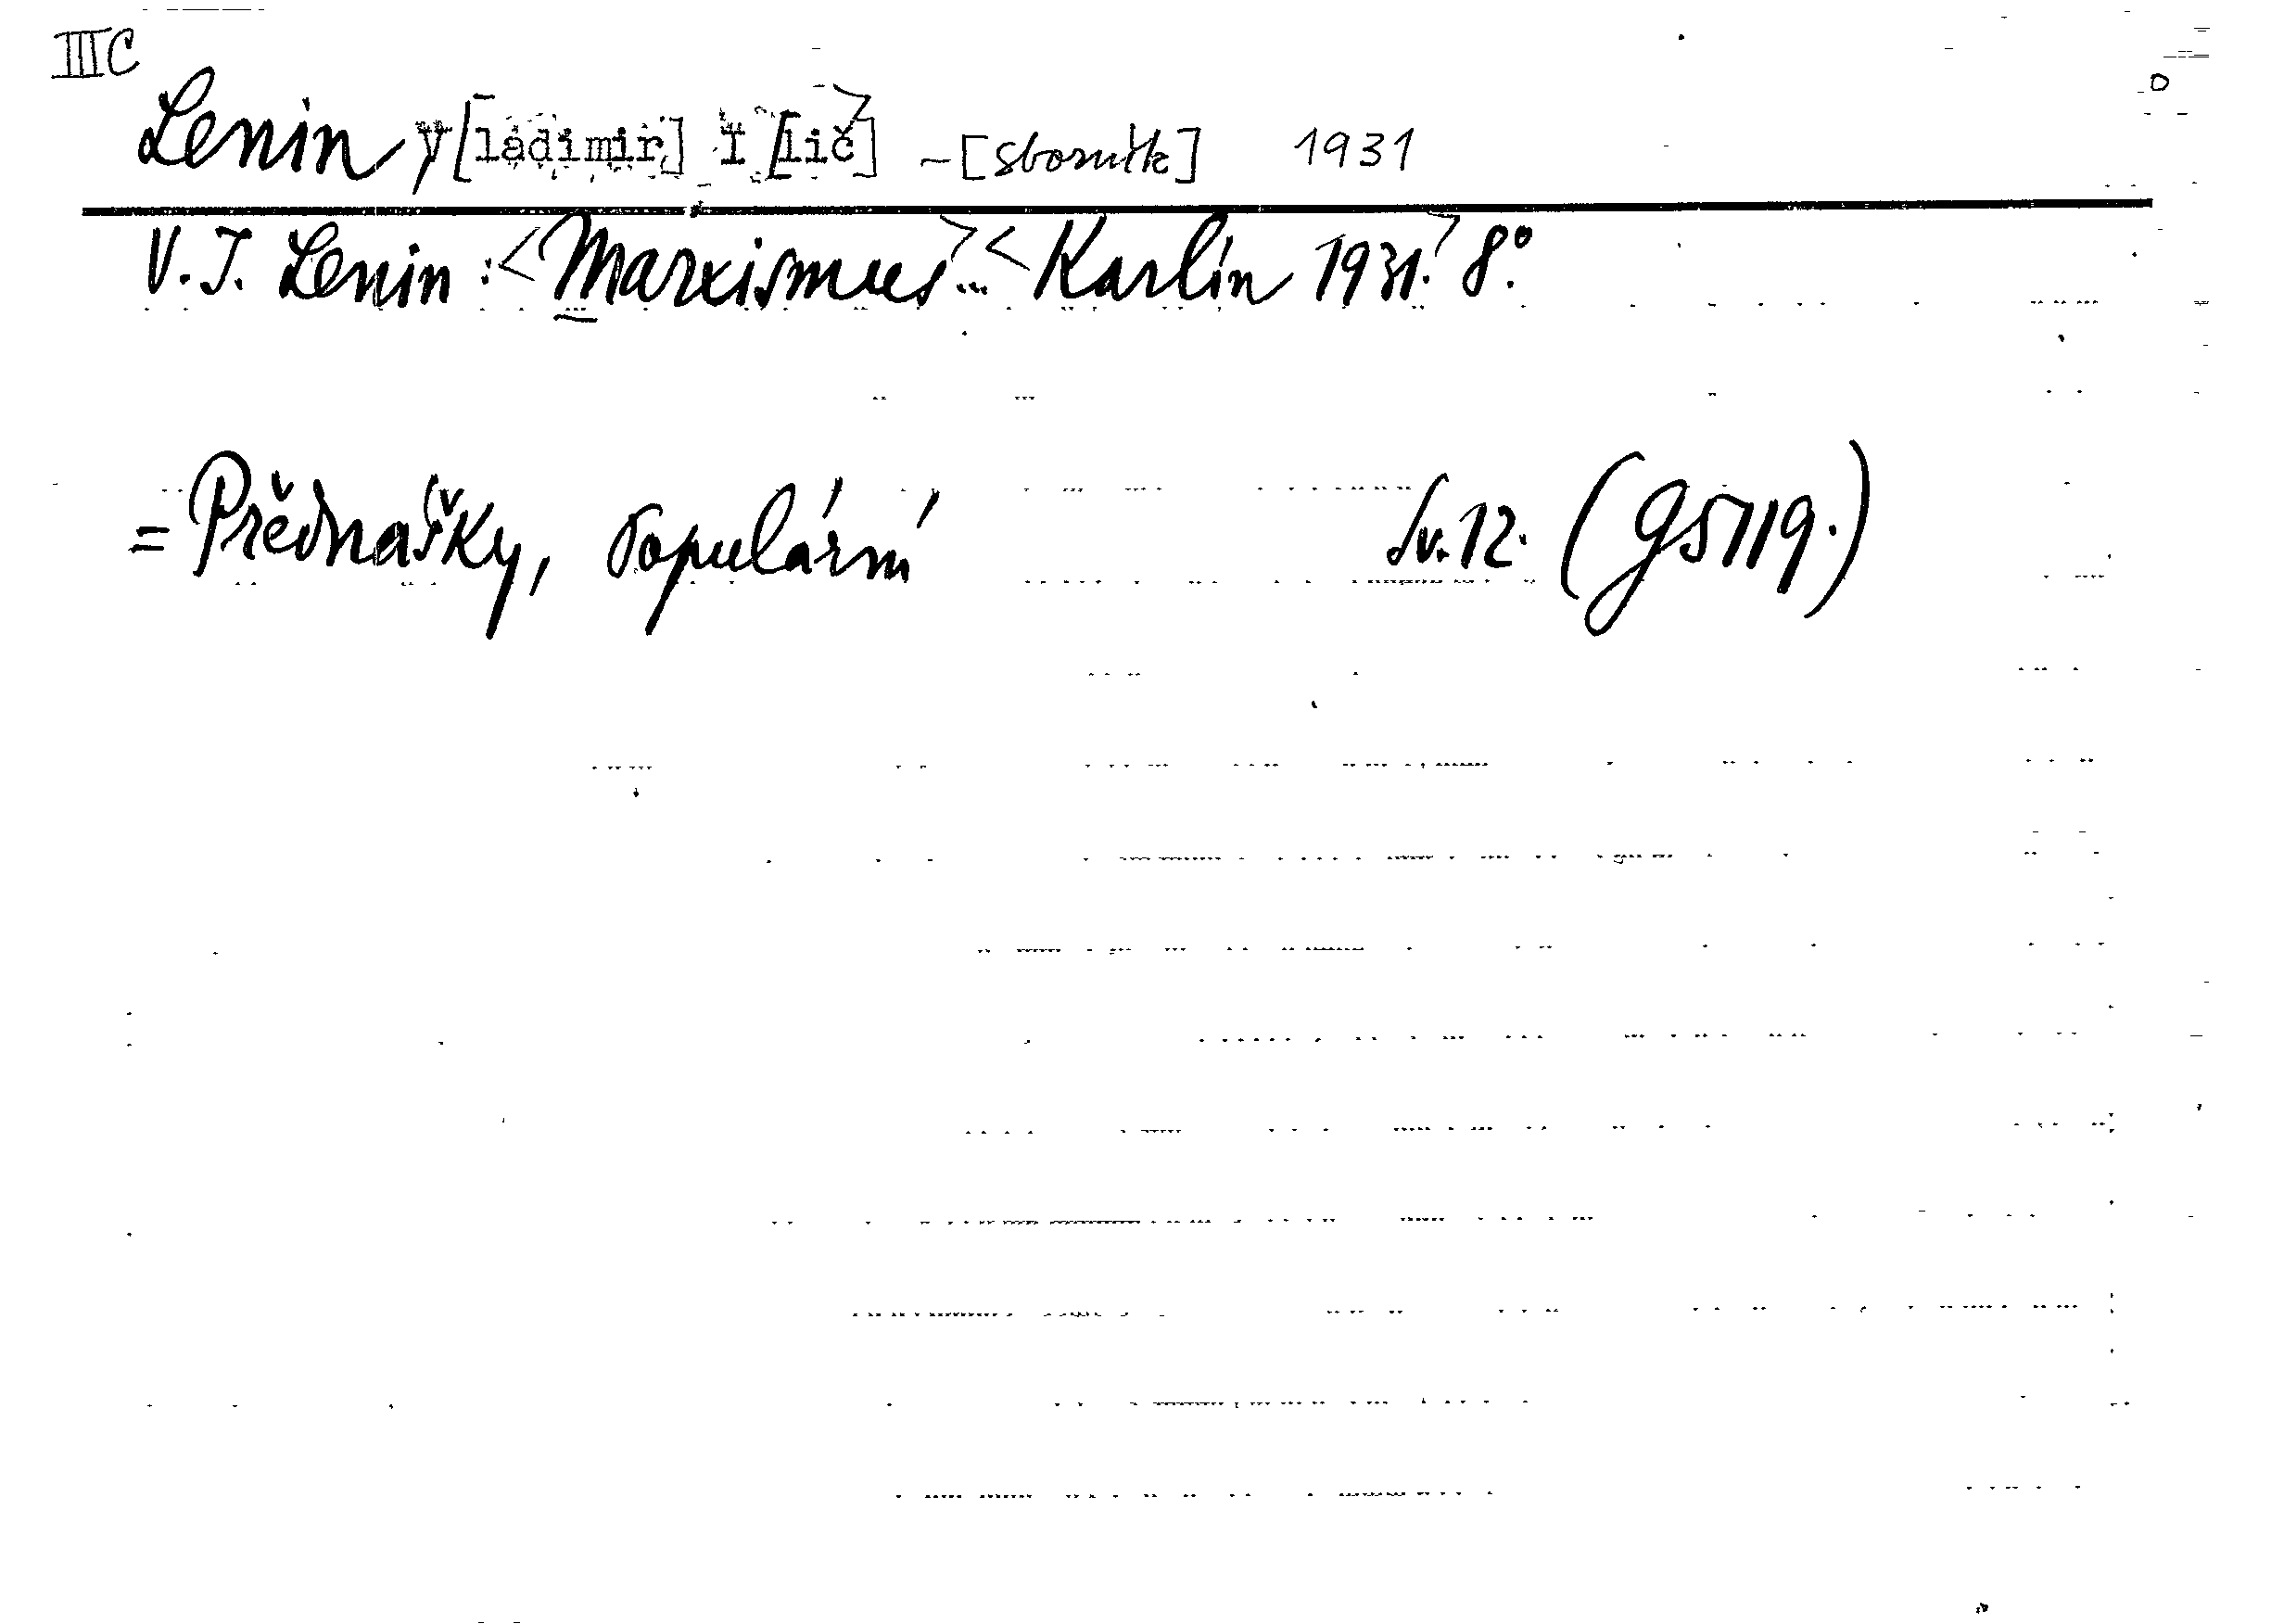 IIIC
Lenin V[ladimir] I[lič] - [sborník] 1931
V. I. Lenin: <Marxismus>... <Karlín 1931.> 8°.
= Přednášky, Populární Sv. 12. (G5119.)